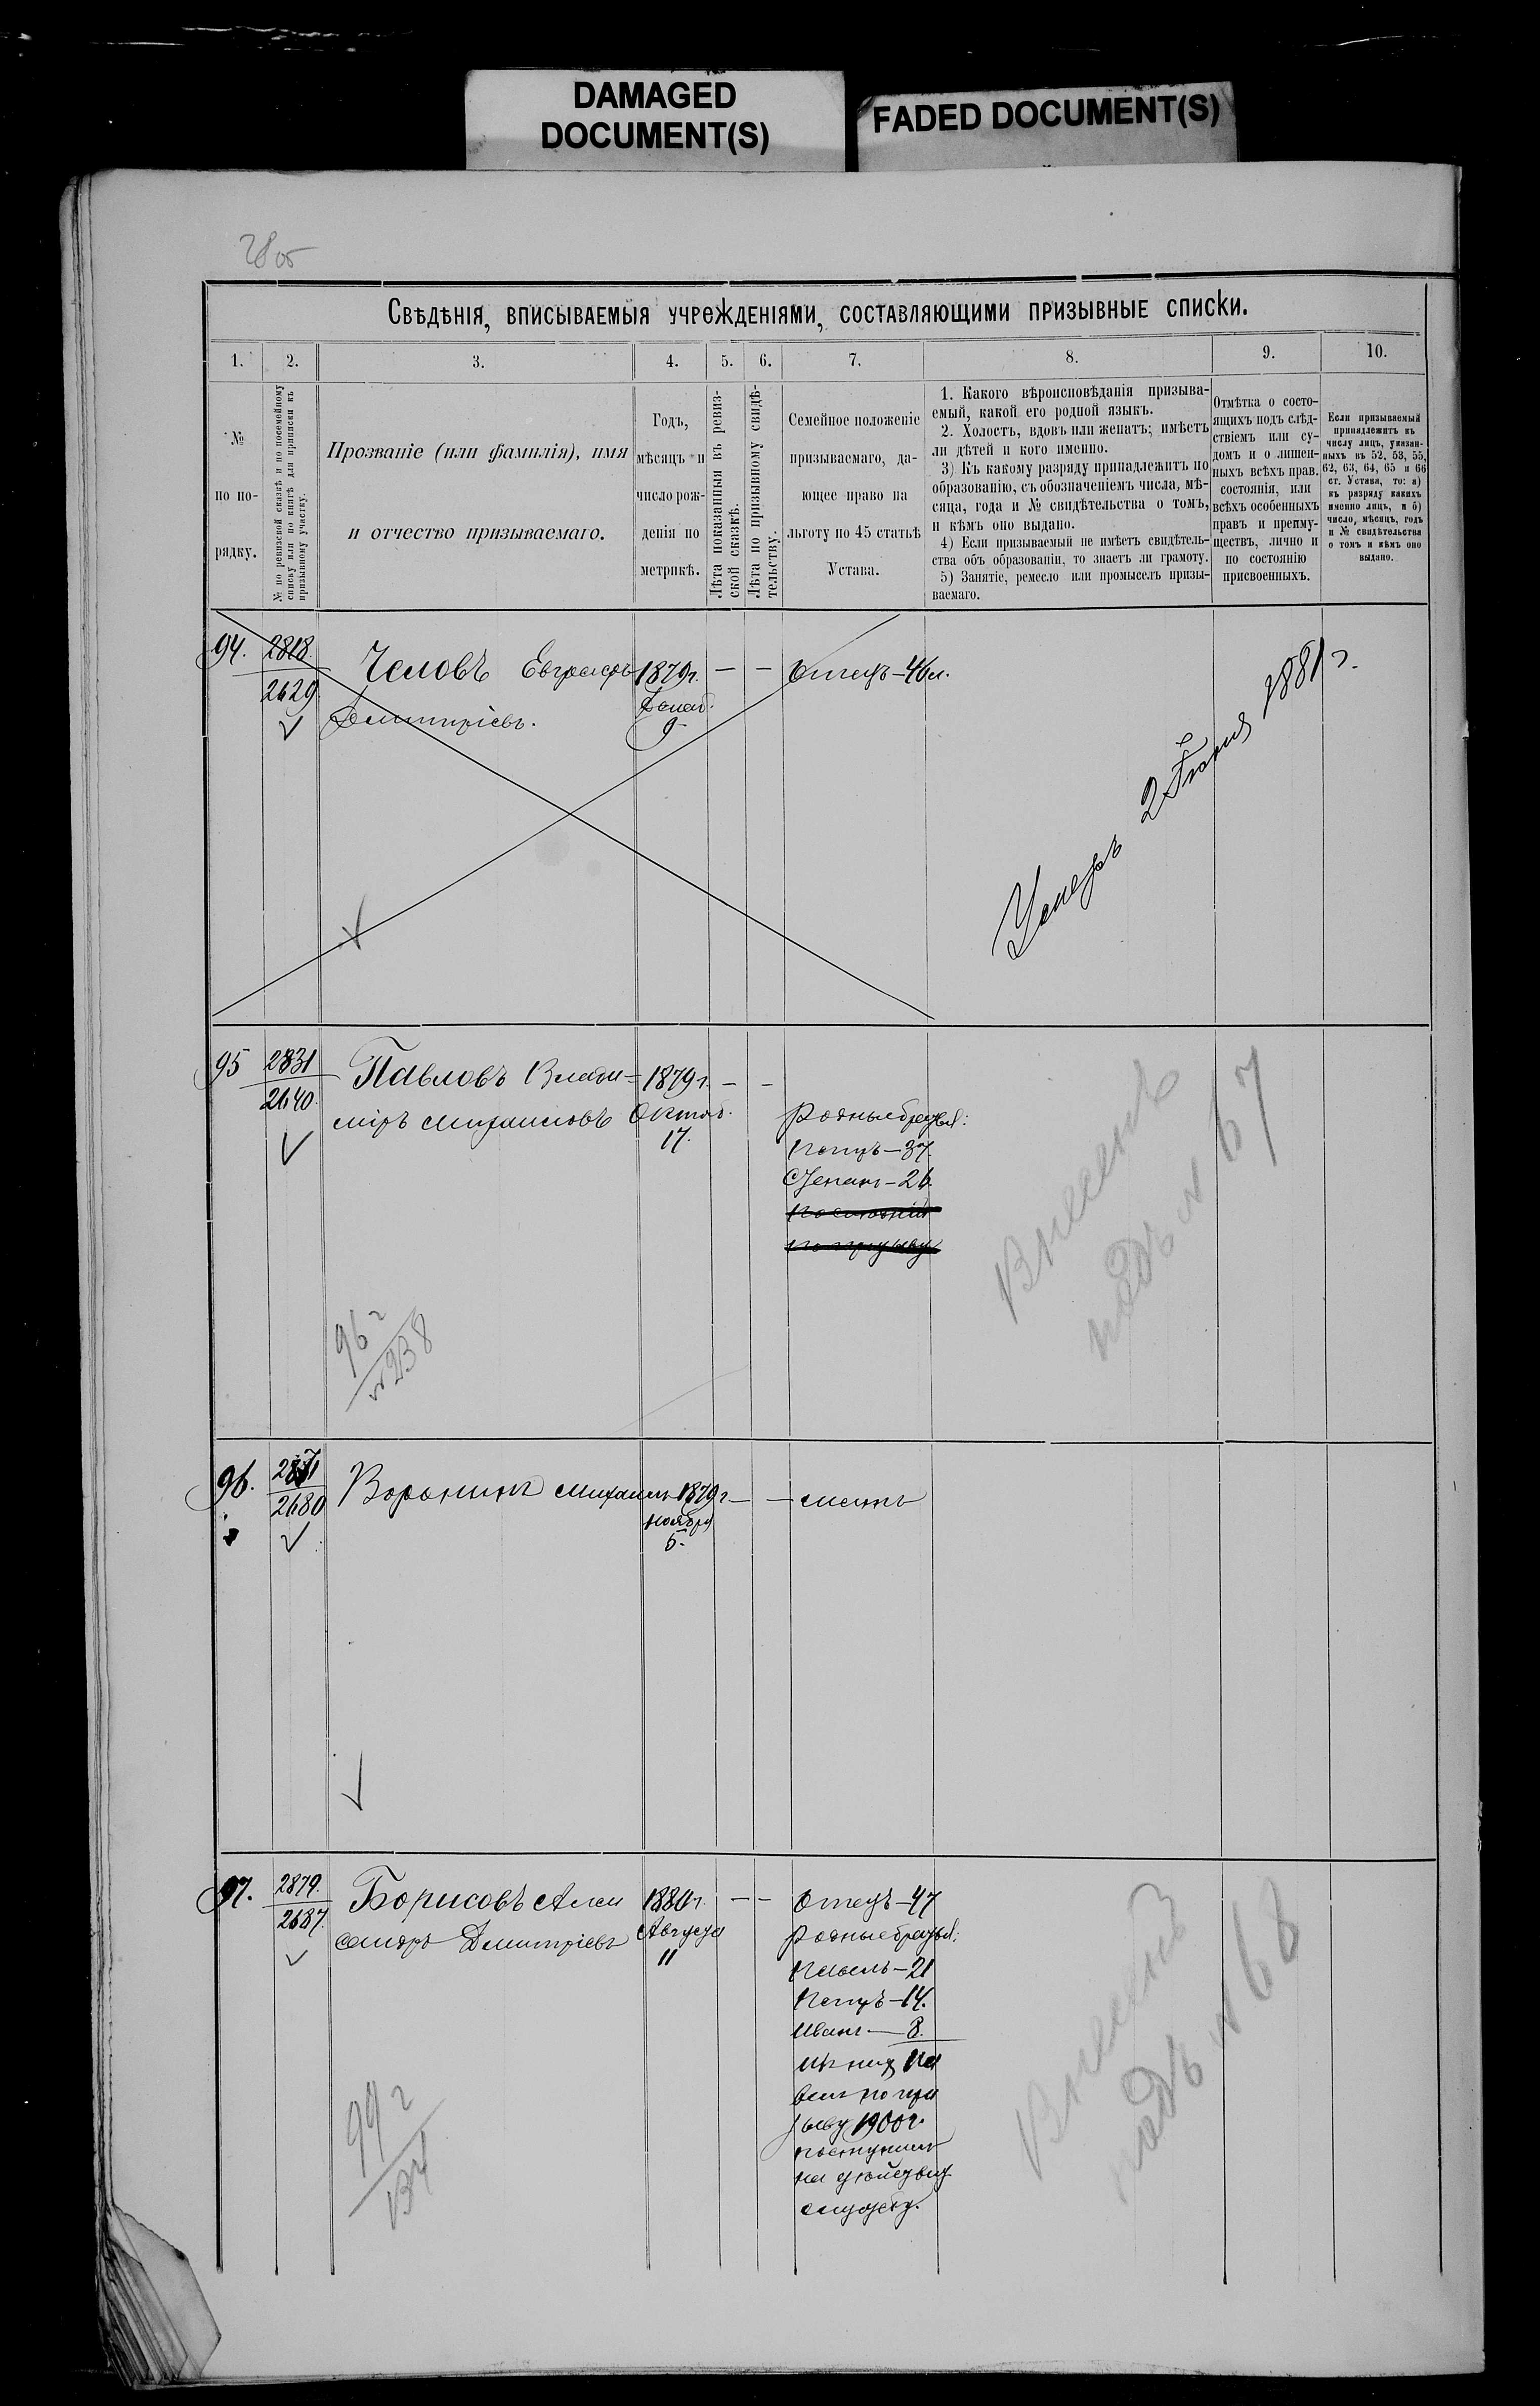 DAMAGED
DOCUMENT(S)
FADED DOCUMENT(S)
2805
Свѣдѣнія, вписываемыя учрежденіями, составляющими призывные списки.
1. 2. 3. 4. 5. 6. 7. 8. 9. 10.
№
по по-
рядку.
№ по ревизской сказкѣ и по посемейному
списку или по книгѣ для приписки къ
призывному участку.
Прозваніе (или фамилія), имя
и отчество призываемаго.
Годъ,
мѣсяцъ и
число рож-
денія по
метрикѣ.
Лѣта показанныя въ ревиз-
ской сказкѣ.
Лѣта по призывному свидѣ-
тельству.
Семейное положеніе
призываемаго, да-
ющее право на
льготу по 45 статьѣ
Устава.
1. Какого вѣроисповѣданія призыва-
емый, какой его родной языкъ.
2. Холостъ, вдовъ или женатъ; имѣетъ
ли дѣтей и кого именно.
3) Къ какому разряду принадлежитъ по
образованію, съ обозначеніемъ числа, мѣ-
сяца, года и № свидѣтельства о томъ,
и кѣмъ оно выдано.
4) Если призываемый не имѣетъ свидѣтель-
ства объ образованіи, то знаетъ ли грамоту.
5) Занятіе, ремесло или промыселъ призы-
ваемаго.
Отмѣтка о состо-
ящихъ подъ слѣд-
ствіемъ или су-
домъ и о лишен-
ныхъ всѣхъ прав.
состоянія, или
всѣхъ особенныхъ
правъ и преиму-
ществъ, лично и
по состоянію
присвоенныхъ.
Если призываемый
принадлежитъ къ
числу лицъ, указан-
ныхъ въ 52, 53, 55,
62, 63, 64, 65 и 66
ст. Устава, то: а)
къ разряду какихъ
именно лицъ, и б)
число, мѣсяцъ, годъ
и № свидѣтельства
о томъ и кѣмъ оно
выдано.
94. 2818. Человъ Евграфъ 1879г. — — Отецъ—46л.
2629
Димитріевъ.
9
Умеръ 2 Іюня 1881 г.
95 2831 Павловъ Влади= 1879 г. — —
2640. міръ Михаиловъ Октяб.
17.
Родные братья:
Петръ—37.
Степанъ—26.
Внесенъ
подъ № 67
96 г
№ 238
96. 2871 Воронинъ Михаилъ 1879 г — — смотъ
2680 Ноября
5.
97. 2879. Борисовъ Алек 1880 г. — — Отецъ—47
2687. сандръ Димитріевъ Августа
11
Родные братья:
Павелъ—21
Петръ—14.
Иванъ—8.
Изъ нихъ Па
велъ по при
зыву 1900 г.
поступилъ
на дѣйству
службу.
Внесенъ
подъ № 68
99 г